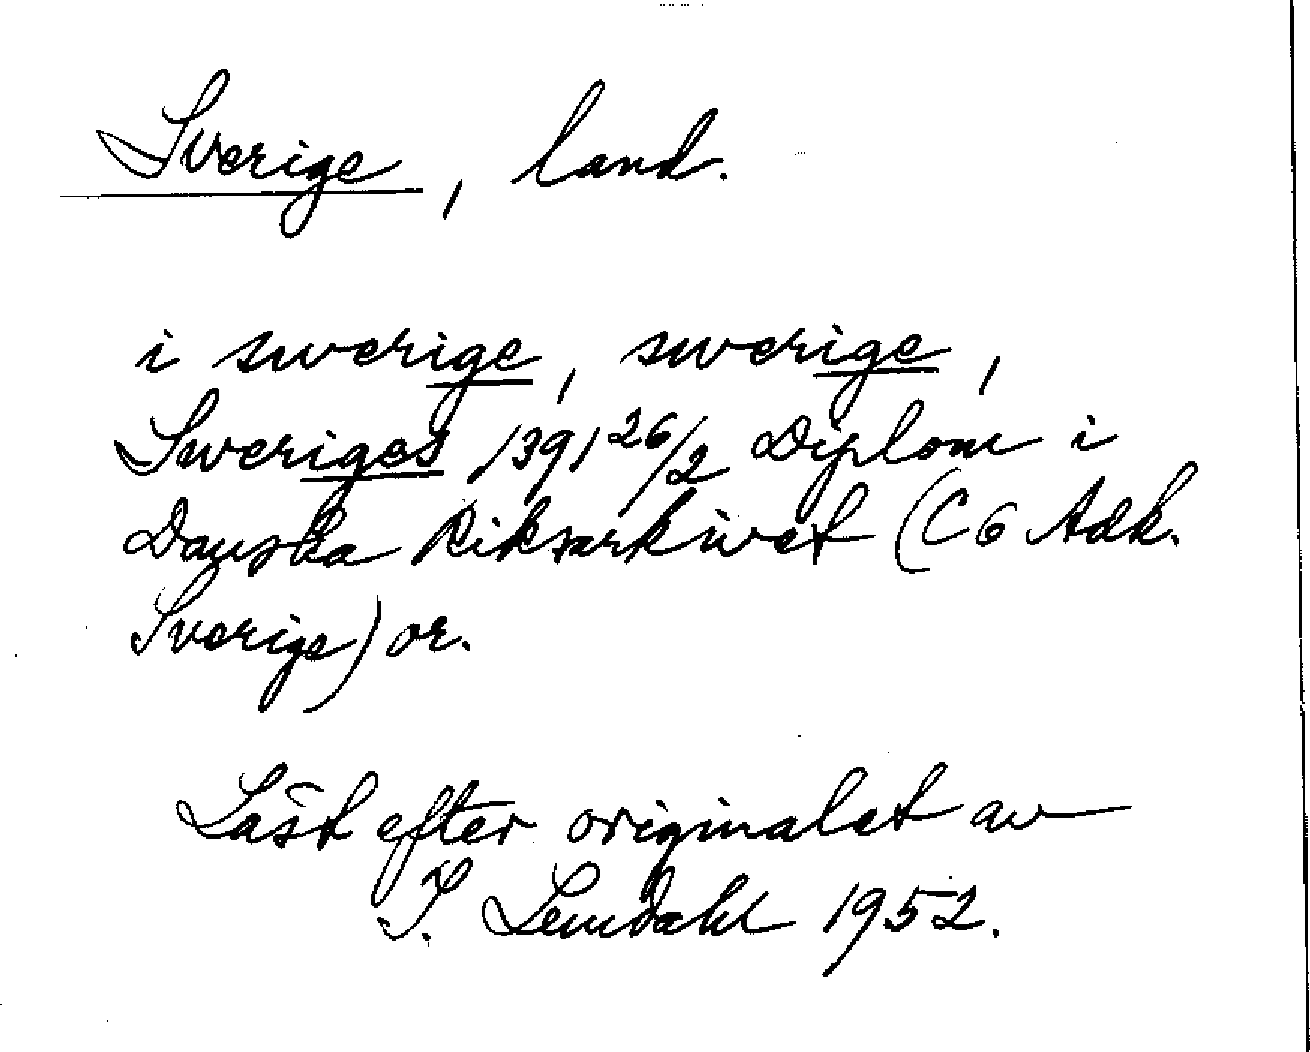 Sverige, land.
i swerige, swerige,
Sweriges 1391 26/2 Diplom i
Danska Riksarkivet (C6 Adk.
Sverige) or.
Läst efter originalet av
I. Lemdahl 1952.